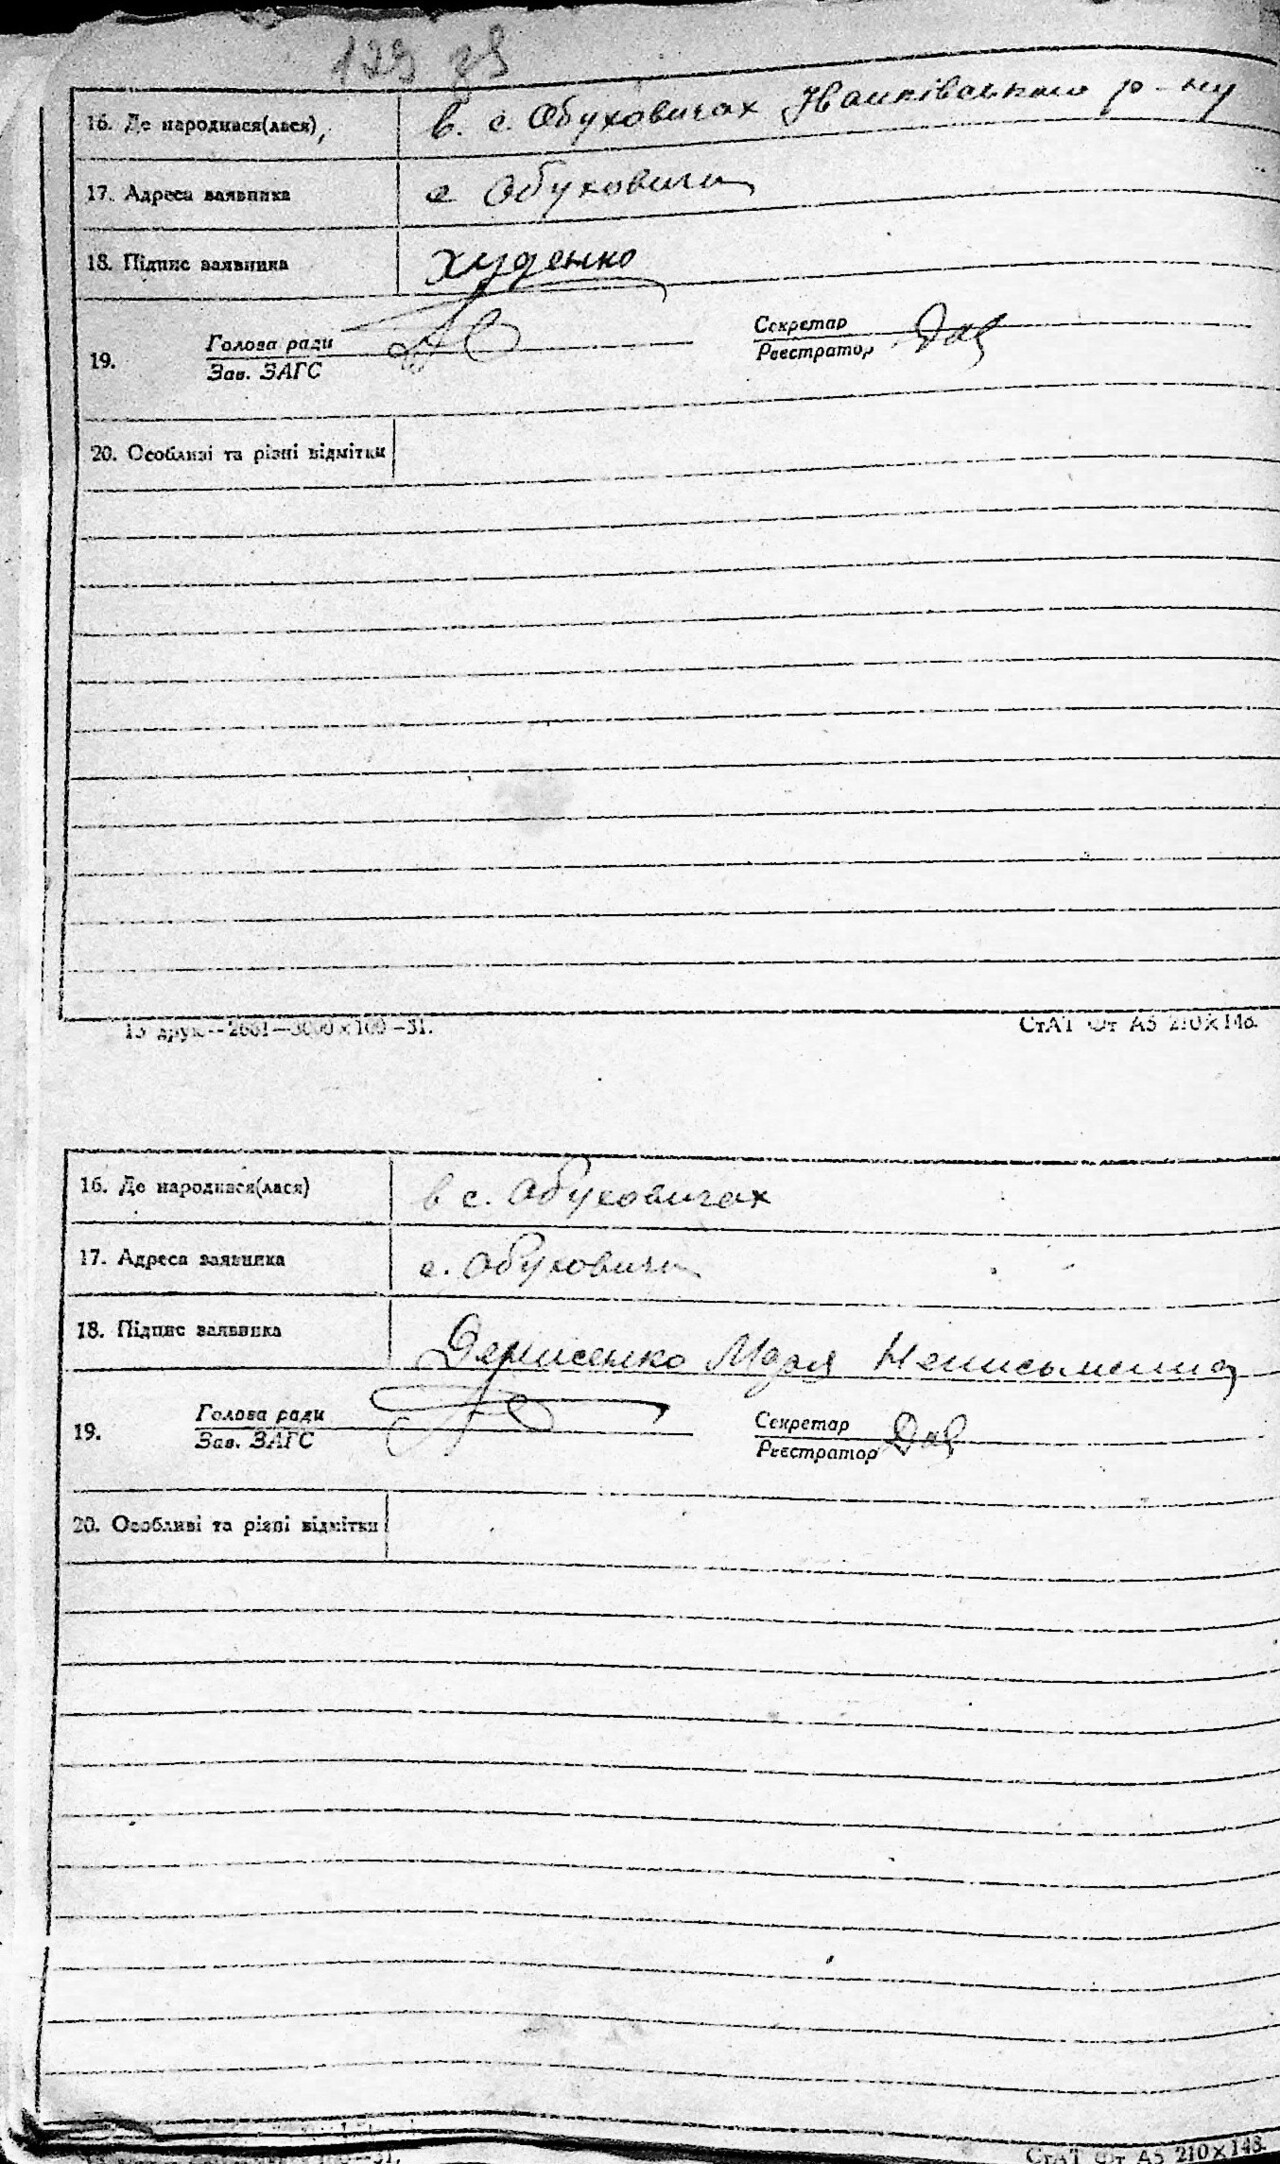 129 зв
16. Де народився(лася), в. с. Обуховичах Іванківського р-ну
17. Адреса заявника с Обуховичи
18. Підпис заявника Худенко
19. Голова ради Секретар
Зав. ЗАГС Реєстратор
20. Особливі та різні відмітки
15 друк.--2661—3000×100—31. СтАТ Фт А5 210×148.
16. Де народився(лася) в с. Обуховичах
17. Адреса заявника с. Обуховичи
18. Підпис заявника Денисенко Неписьменна
19. Голова ради Секретар
Зав. ЗАГС Реєстратор
20. Особливі та різні відмітки
—31. СтАТ Фт А5 210×148.